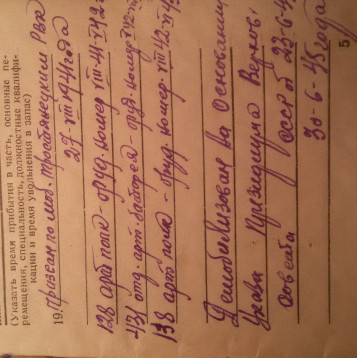 (Указать время прибытия в часть, основные пе-
ремещения, специальность, должностные квалифи-
кации и время увольнения в запас)
19. Призван по моб. Тростянецким РВК
27-VIII 1941 года
128 арт полк - оруд. номер VIII-41-
отд. арт. батарея - оруд. номер
138 арт. полк - оруд. номер VIII-42-
Демобилизован на основании
Указа Президиума Верхов.
Совета СССР от 23-6-4
30-6-45 года
5